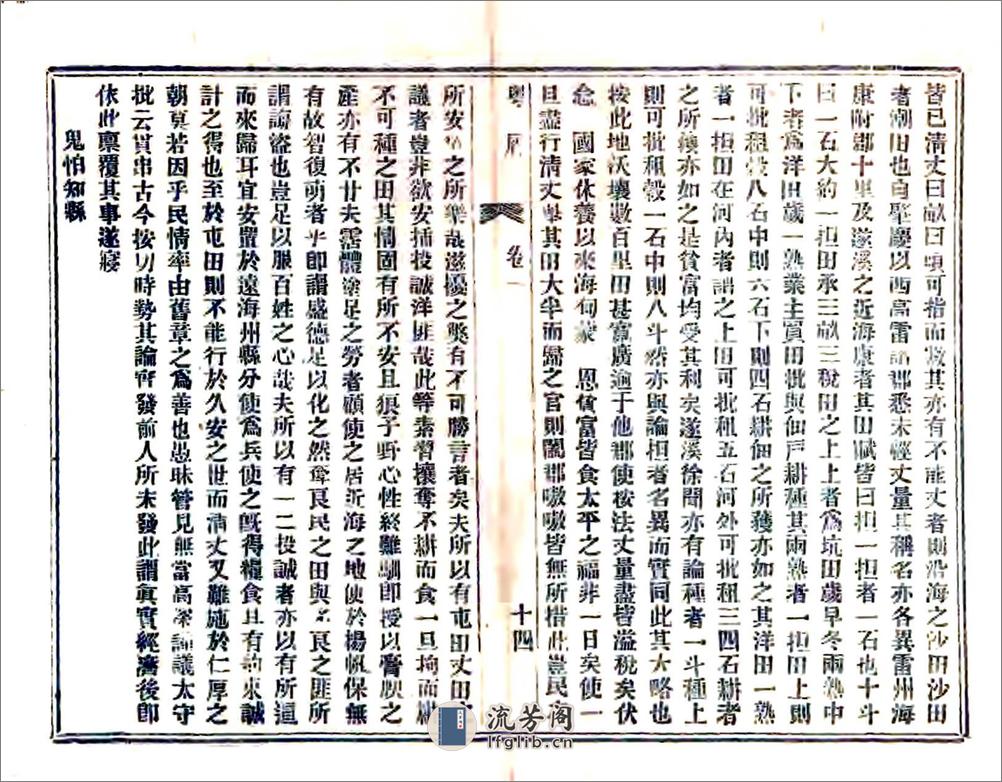 皆已清丈曰畝曰頃可指而數其亦有不能丈者則沿海之沙田沙田
者潮田也自肇慶以西高雷諸郡悉未經丈量其稱名亦各異雷州海
康附郡十里及遂溪之近海康者其田賦皆曰担一担者一石也十斗
曰一石大約一担田承三畝三稅田之上上者為坑田歲早冬兩熟中
下者為洋田歲一熟業主買田批與佃戶耕種其兩熟者一担田上則
可批租穀八石中則六石下則四石耕佃之所獲亦如之其洋田一熟
者一担田在河內者謂之上田可批租五石河外可批租三四石耕者
之所獲亦如之是貧富均受其利矣遂溪徐聞亦有論種者一斗種上
則可批租穀一石中則八斗然亦與論担者名異而實同此其大略也
按此地沃壤數百里田甚寬廣逾于他郡使按法丈量盡皆溢稅矣伏
念 國家休養以來海甸蒙 恩貧富皆食太平之福非一日矣使一
旦盡行清丈舉其田大半而歸之官則闔郡嗷嗷皆無所措此豈民之
粵屑 卷一 十四
所安情之所樂哉滋擾之獘有不可勝言者矣夫所以有屯田丈田之
議者豈非欲安插投誠洋匪哉此等素習攘奪不耕而食一旦拘而
不可種之田其情固有所不安且狼子野心性終難馴即授以膏腴之
產亦有不甘夫霑體塗足之勞者顧使之居近海之地使於揚帆保無
有故智復萌者乎即謂盛德足以化之然奪良民之田與不良之匪所
謂誨盜也豈足以服百姓之心哉夫所以有一二投誠者亦以有所逼
而來歸耳宜安置於遠海州縣分使為兵使之既得糧食且有約束誠
計之得也至於屯田則不能行於久安之世而清丈又難施於仁厚之
朝莫若因乎民情率由舊章之為善也愚昧管見無當高深謹議太守
批云貫串古今按切時勢其論實發前人所未發此謂眞實經濟後即
依此稟覆其事遂寢
鬼怕知縣
流芳閣
lfglib.cn